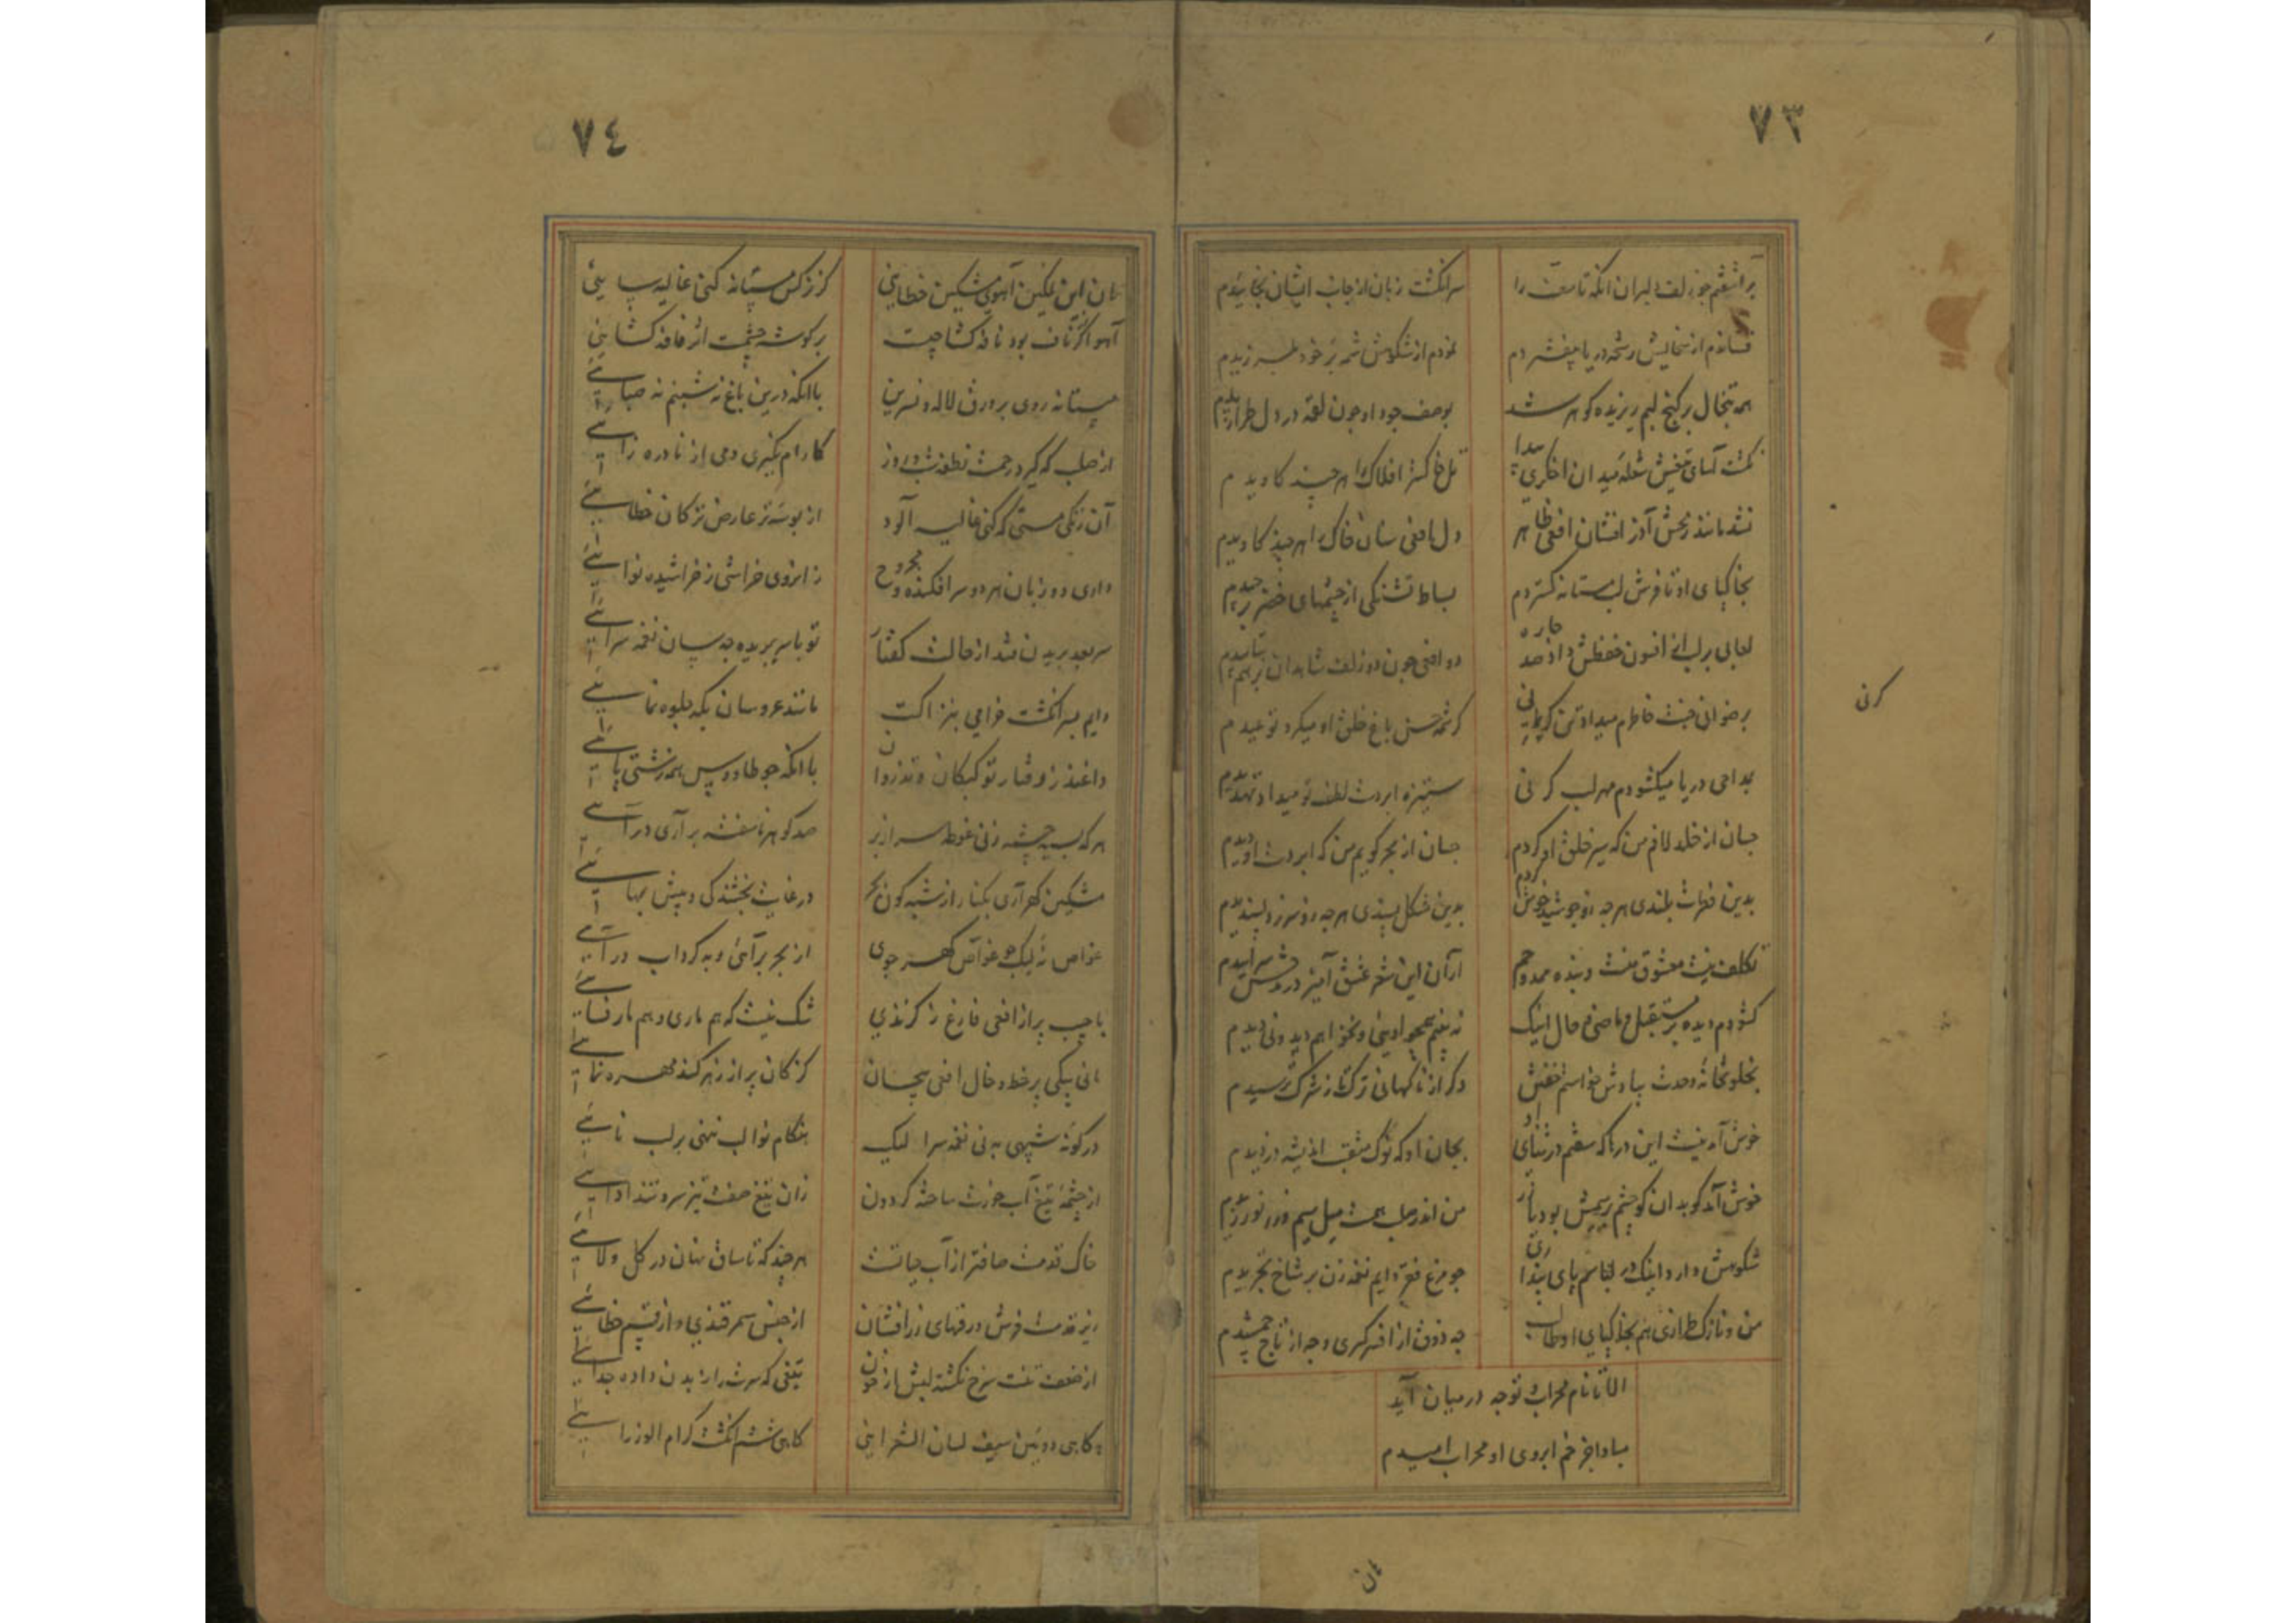 ٧٣
برآشفتم چو زلف دلبران انکه تا سقف را سرانکشت زبان از جانب ایشان بخائیدم
فشاندم از نمودم از شکوهش بر خود
همه تبخال بر کنج لبم ریزیده کوهر شد بوصف جود او چون لقمه در دل
کمت آسای شعله میدان افلاک را هر چند کاویدم
نشد مانند آذر افشان افعی ظاهر دل افعی سان خاک را هر چند کاویدم
بخاکپای او تا فرش لب مستانه کستردم بساط تشنکی از چشمهای خضر برچیدم
لعابی بر لب از افسون حفظش داد صد چاره دو افعی چون دو زلف شاهدان برهم بتابیدم
برضوانی جنت خاطرم میداد کرشمه حسن باغ خلق او میکرد نومیدم
بمداحی دریا میکشودم مهر لب کرنی ستیزه ابر دست لطف تو میداد تهدیدم
کرنی
جسان از خلد لافم من که سیر خلق او کردم جسان از بحر کویم من که ابر دست او دیدم
بدین فطرت بلندی هر چه زو جوشید خوش کردم بدین مشکل پسندی هر چه زو سر زد پسندیدم
تکلف نیست معشوق منست و بنده ممدوحم ازان این شعر عشق آمیز در مدحش سرائیدم
کشودم دیده بر مستقبل و ماضی و حال اینک نه بینم همچو اوئی و نخواهم دید و نی دیدم
بخلوتخانه وحدت بیادش خواستم خفتن دکر از ناکهانی ترکتاز شرک ترسیدم
خوش آمد نیست این درها که سفتم در ثنای او بجان او که نوک مثقب اندیشه دزدیدم
خوش آمد کو بدان کو چشم بر سیمش بود باز من اندر جیب همت میل سیم و زر نورزیدم
شکوهش دارد اینک در لباسم پای پنداری چو مرغ فقر دایم نغمه زن بر شاخ تجریدم
من و نازک طرازی هم بخاکپای او طالب چه ذوق از افسر کسری و چه از تاج جمشیدم
الا تا نام محراب توجه در میان آید
مبادا جز خم ابروی او محراب امیدم
٧٤
آهوی مشکین خطایی کز نرکس مستانه کنی غالیه سایی
آهو اکر از ناف بود نافه کشا چیست بر کوشه چشمت اثر نافه کشایی
مستانه روی بر ورق لاله و نسرین با انکه درین باغ نه شبنم نه صبایی
از حبله که کیرد رحمت نطفه شب و روز کارام نکیری دمی از نادره زایی
آن زنکی مستی که کنی غالیه آلود از بوسه تر عارض ترکان خطایی
داری دو زبان هر دو سرافکنده و مجروح زانروی خراشی ز خراشیده نوایی
سر بعد بریدن فتد از حالت کفتار تو با سر بریده چه سان نغمه سرایی
دایم بسر انکشت خرامی بنزاکت مانند عروسان بکه جلوه نمایی
داغند ز رفتار تو کبکان و تذروان با انکه چو طاووس همه زشتی پایی
هر که سر بچشمه زنی غوطه سرازیر صد کوهر ناسفته برآری و درآیی
مشکین کهر آری بکنار از شبه کون بحر در غایت بخشندکی و بیش بهایی
غواص نه لیک چو غواص کهر جوی از بحر برآئی و بکرداب درآیی
با جیب پر از افعی فارغ ز کزندی شک نیست که هم ماری و هم مارفسایی
مانی بیکی پر خط و خال افعی پیچان کز کان پر از زهر کند مهره نمایی
در کونه شبیهی به نی نغمه سرا لیک هنکام نوا لب ننهی بر لب نایی
از چشمه تیغ آب خورت ساخته کردون زان تیغ صفت تیز سر و تند ادایی
خاک قدمت صافتر از آب حیاتست هر چند که تا ساق نهان در کل و لایی
زیر قدمت فرش ورقهای زرافشان از جنس سمرقندی و از قسم خطایی
از ضعف تنت سرخ نکشته لبش از خون تیغی که سرت را ز بدن داده جدایی
کاهی دویمین سیف لسان الشعرایی کاهی ششم انکشت کرام الوزرایی